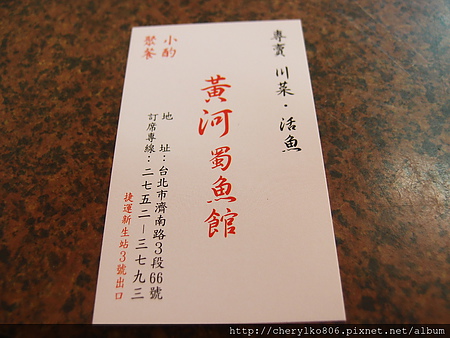 專賣 川菜・活魚
小酌
聚餐
黃河蜀魚館
地 址：台北市濟南路3段66號
訂席專線：二七五二－三七九三
捷運新生站3號出口
http://cherylko806.pixnet.net/album